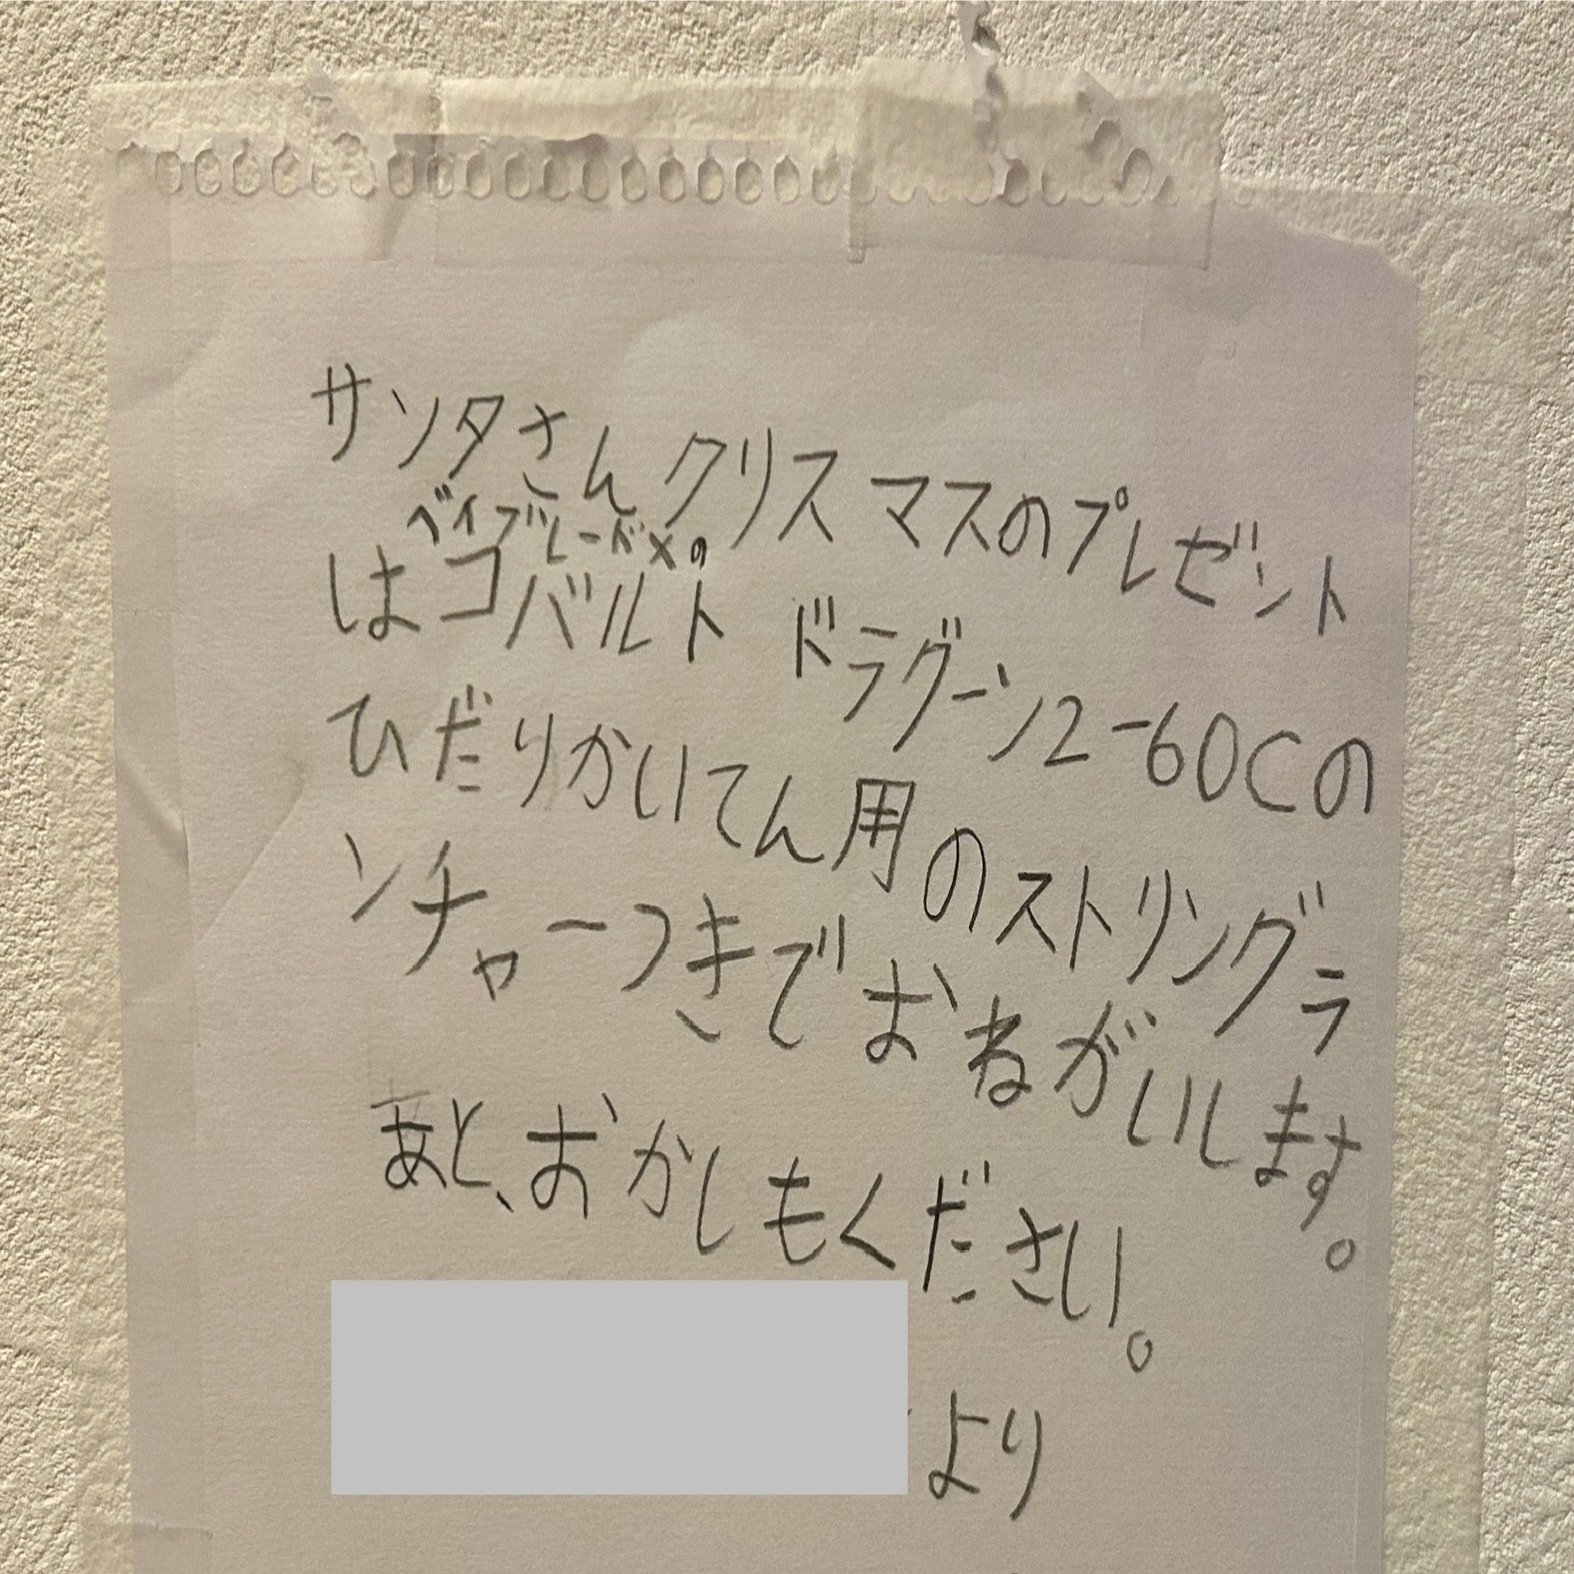 サンタさんクリスマスのプレゼント
ベイブレードXの
はコバルトドラグーン2-60Cの
ひだりかいてん用のストリングラ
ンチャーつきでおねがいします。
あと、おかしもください。
より